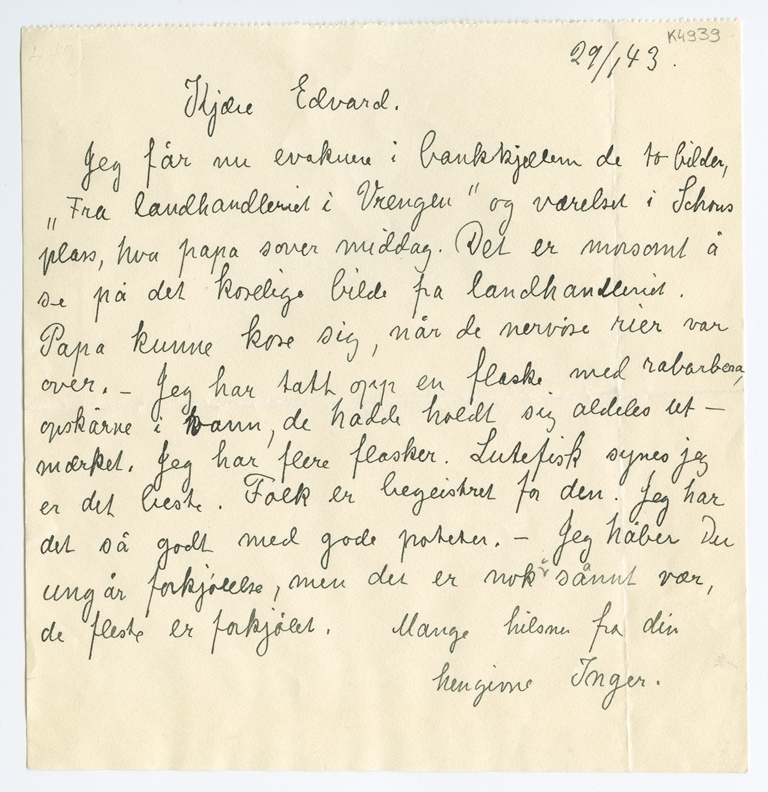 K4939
29/1 43.
Kjære Edvard.
Jeg får nu evakuere i bankkjelleren de to bilder,
„Fra landhandleriet i Vrengen" og værelset i Schous
plass, hvor papa sover middag. Det er morsomt å
se på det koselige bilde fra landhandleriet.
Papa kunne kose sig, når de nervøse rier var
over. – Jeg har tatt opp en flaske med rabarbera,
opskårne i vann, de hadde holdt sig aldeles ut –
mærket. Jeg har flere flasker. Lutefisk synes jeg
er det beste. Folk er begeistret for den. Jeg har
det så godt med gode poteter. – Jeg håber Du
ungår forkjølelse, men det er nok i sånnt vær,
de fleste er forkjølet. Mange hilsner fra din
hengivne Inger.